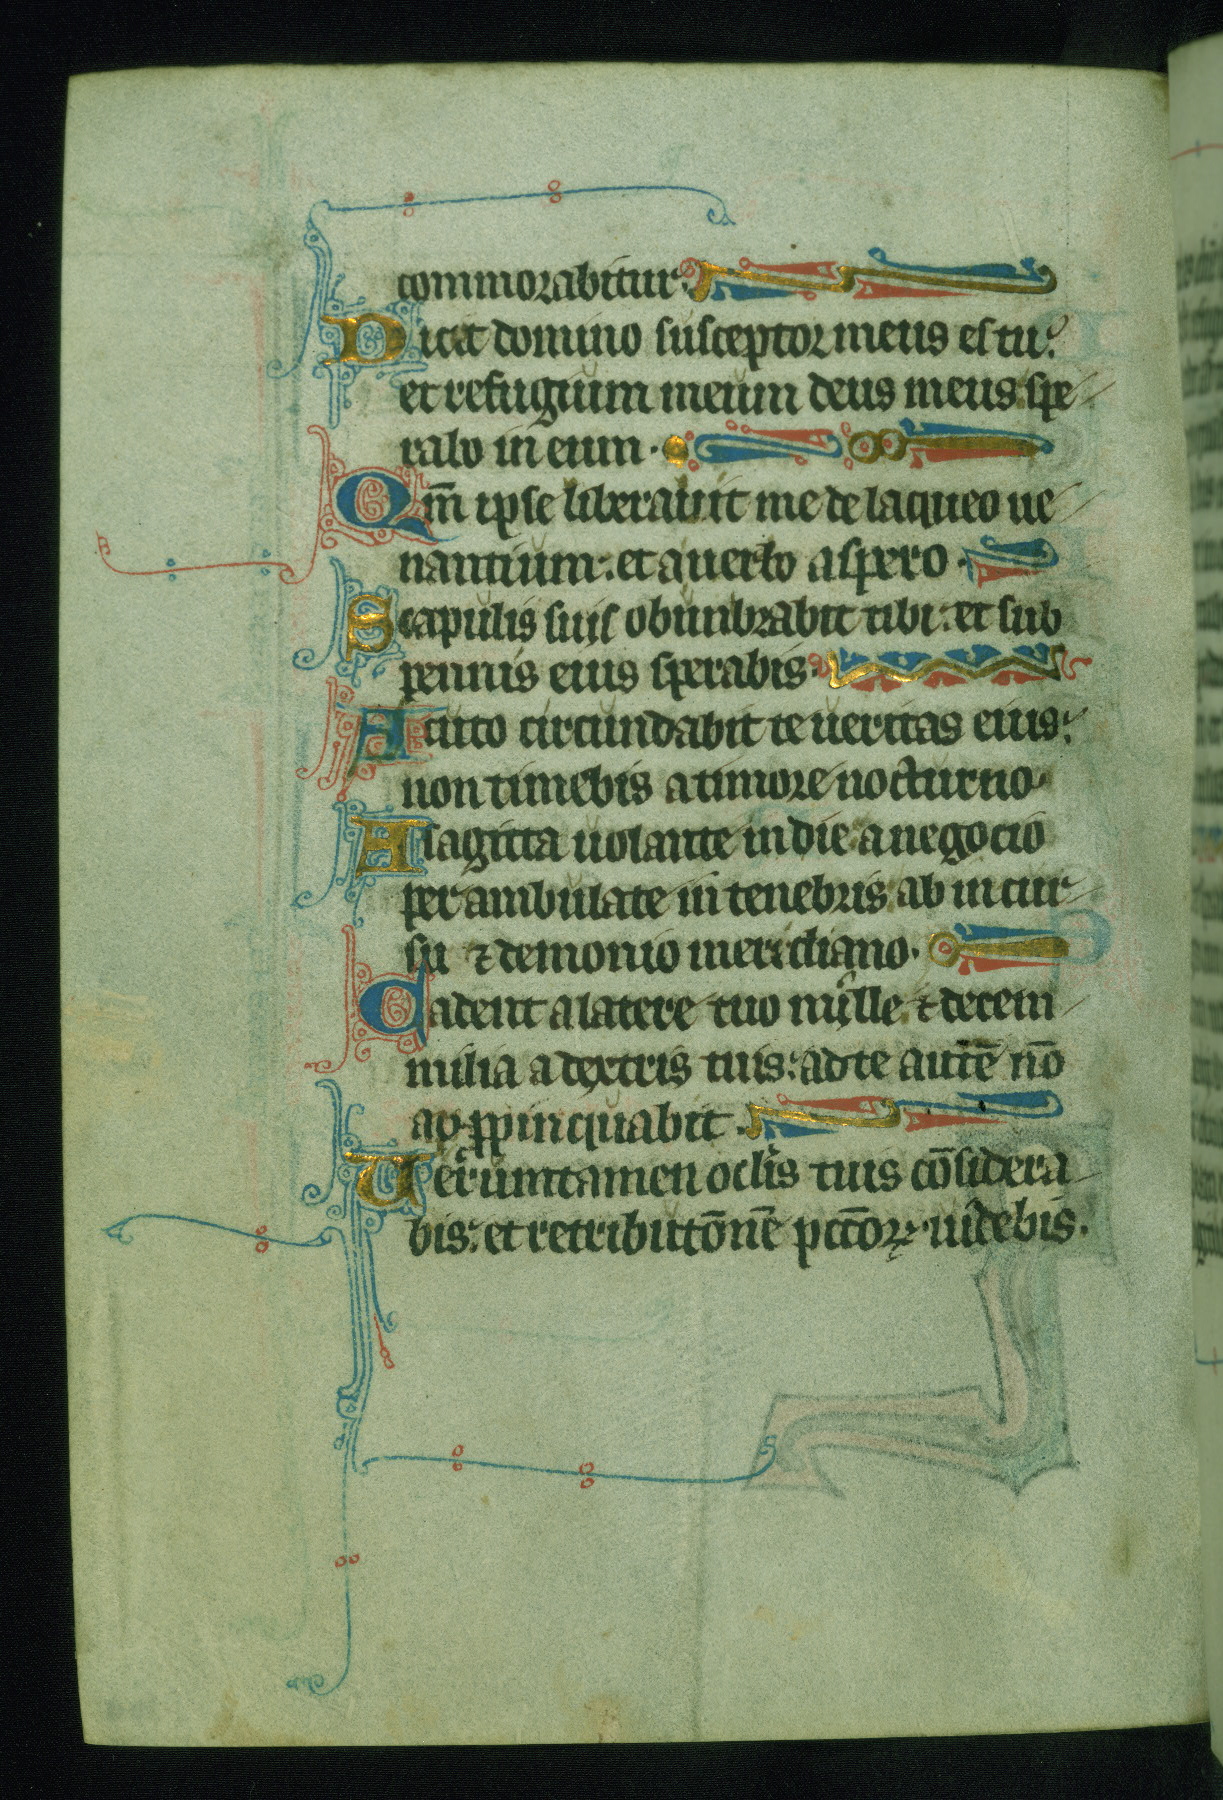 commorabitur.
Dicet domino susceptor meus es tu:
et refugium meum deus meus spe
rabo in eum.
Qm̄ ipse liberavit me de laqueo ue
nantium: et a uerbo aspero.
Scapulis suis obumbrabit tibi: et sub
pennis eius sperabis.
Scuto circundabit te ueritas eius:
non timebis a timore nocturno.
A sagitta uolante in die a negocio
perambulate in tenebris ab incur
su ⁊ demonio meridiano.
Cadent a latere tuo mille ⁊ decem
milia a dextris tuis: ad te autē nō
appinquabit.
Ueruntamen oclis tuis cōsidera
bis: et retributōnē pctōꝝ uidebis.